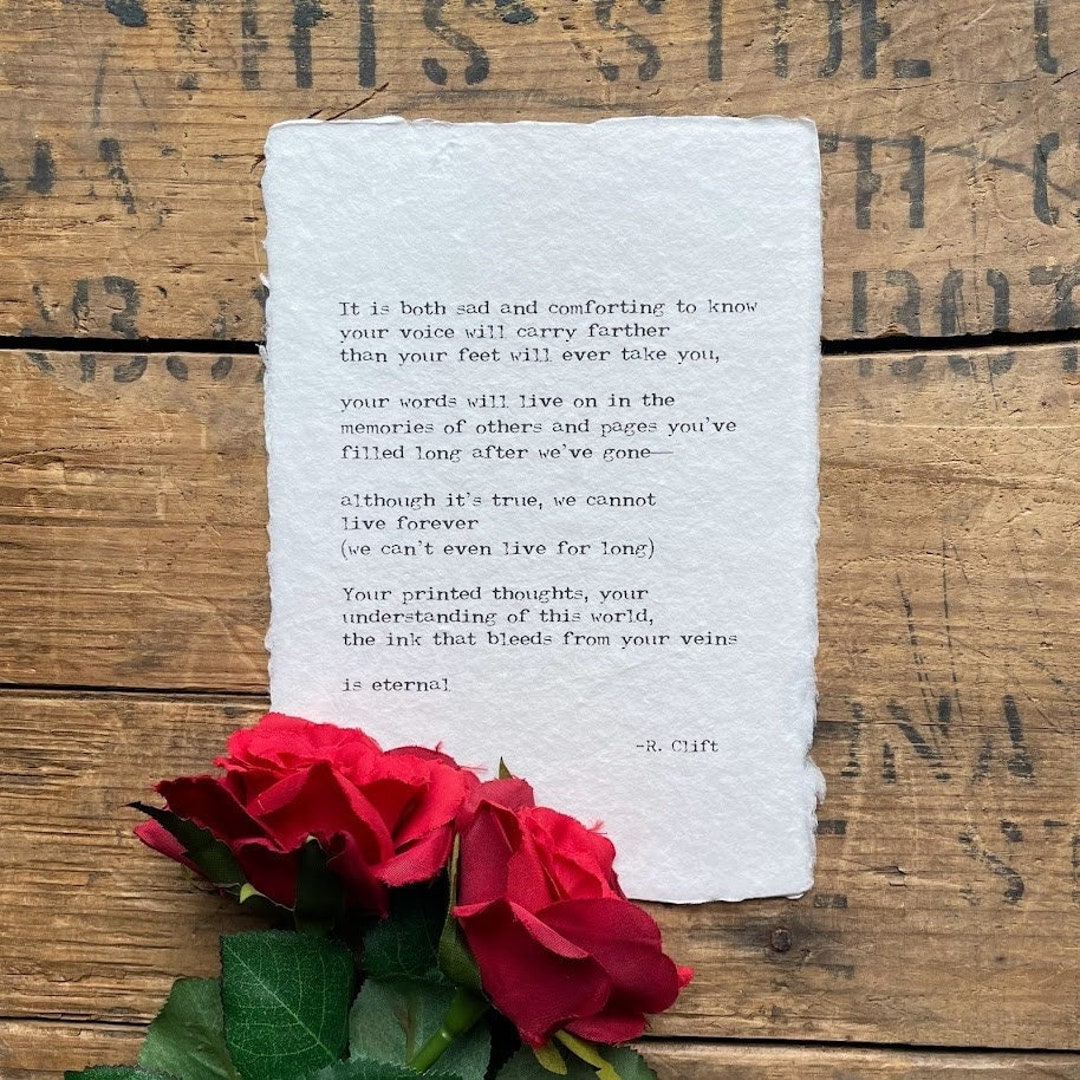 It is both sad and comforting to know
your voice will carry farther
than your feet will ever take you,
your words will live on in the
memories of others and pages you've
filled long after we've gone—
although it's true, we cannot
live forever
(we can't even live for long)
Your printed thoughts, your
understanding of this world,
the ink that bleeds from your veins
is eternal
-R. Clift